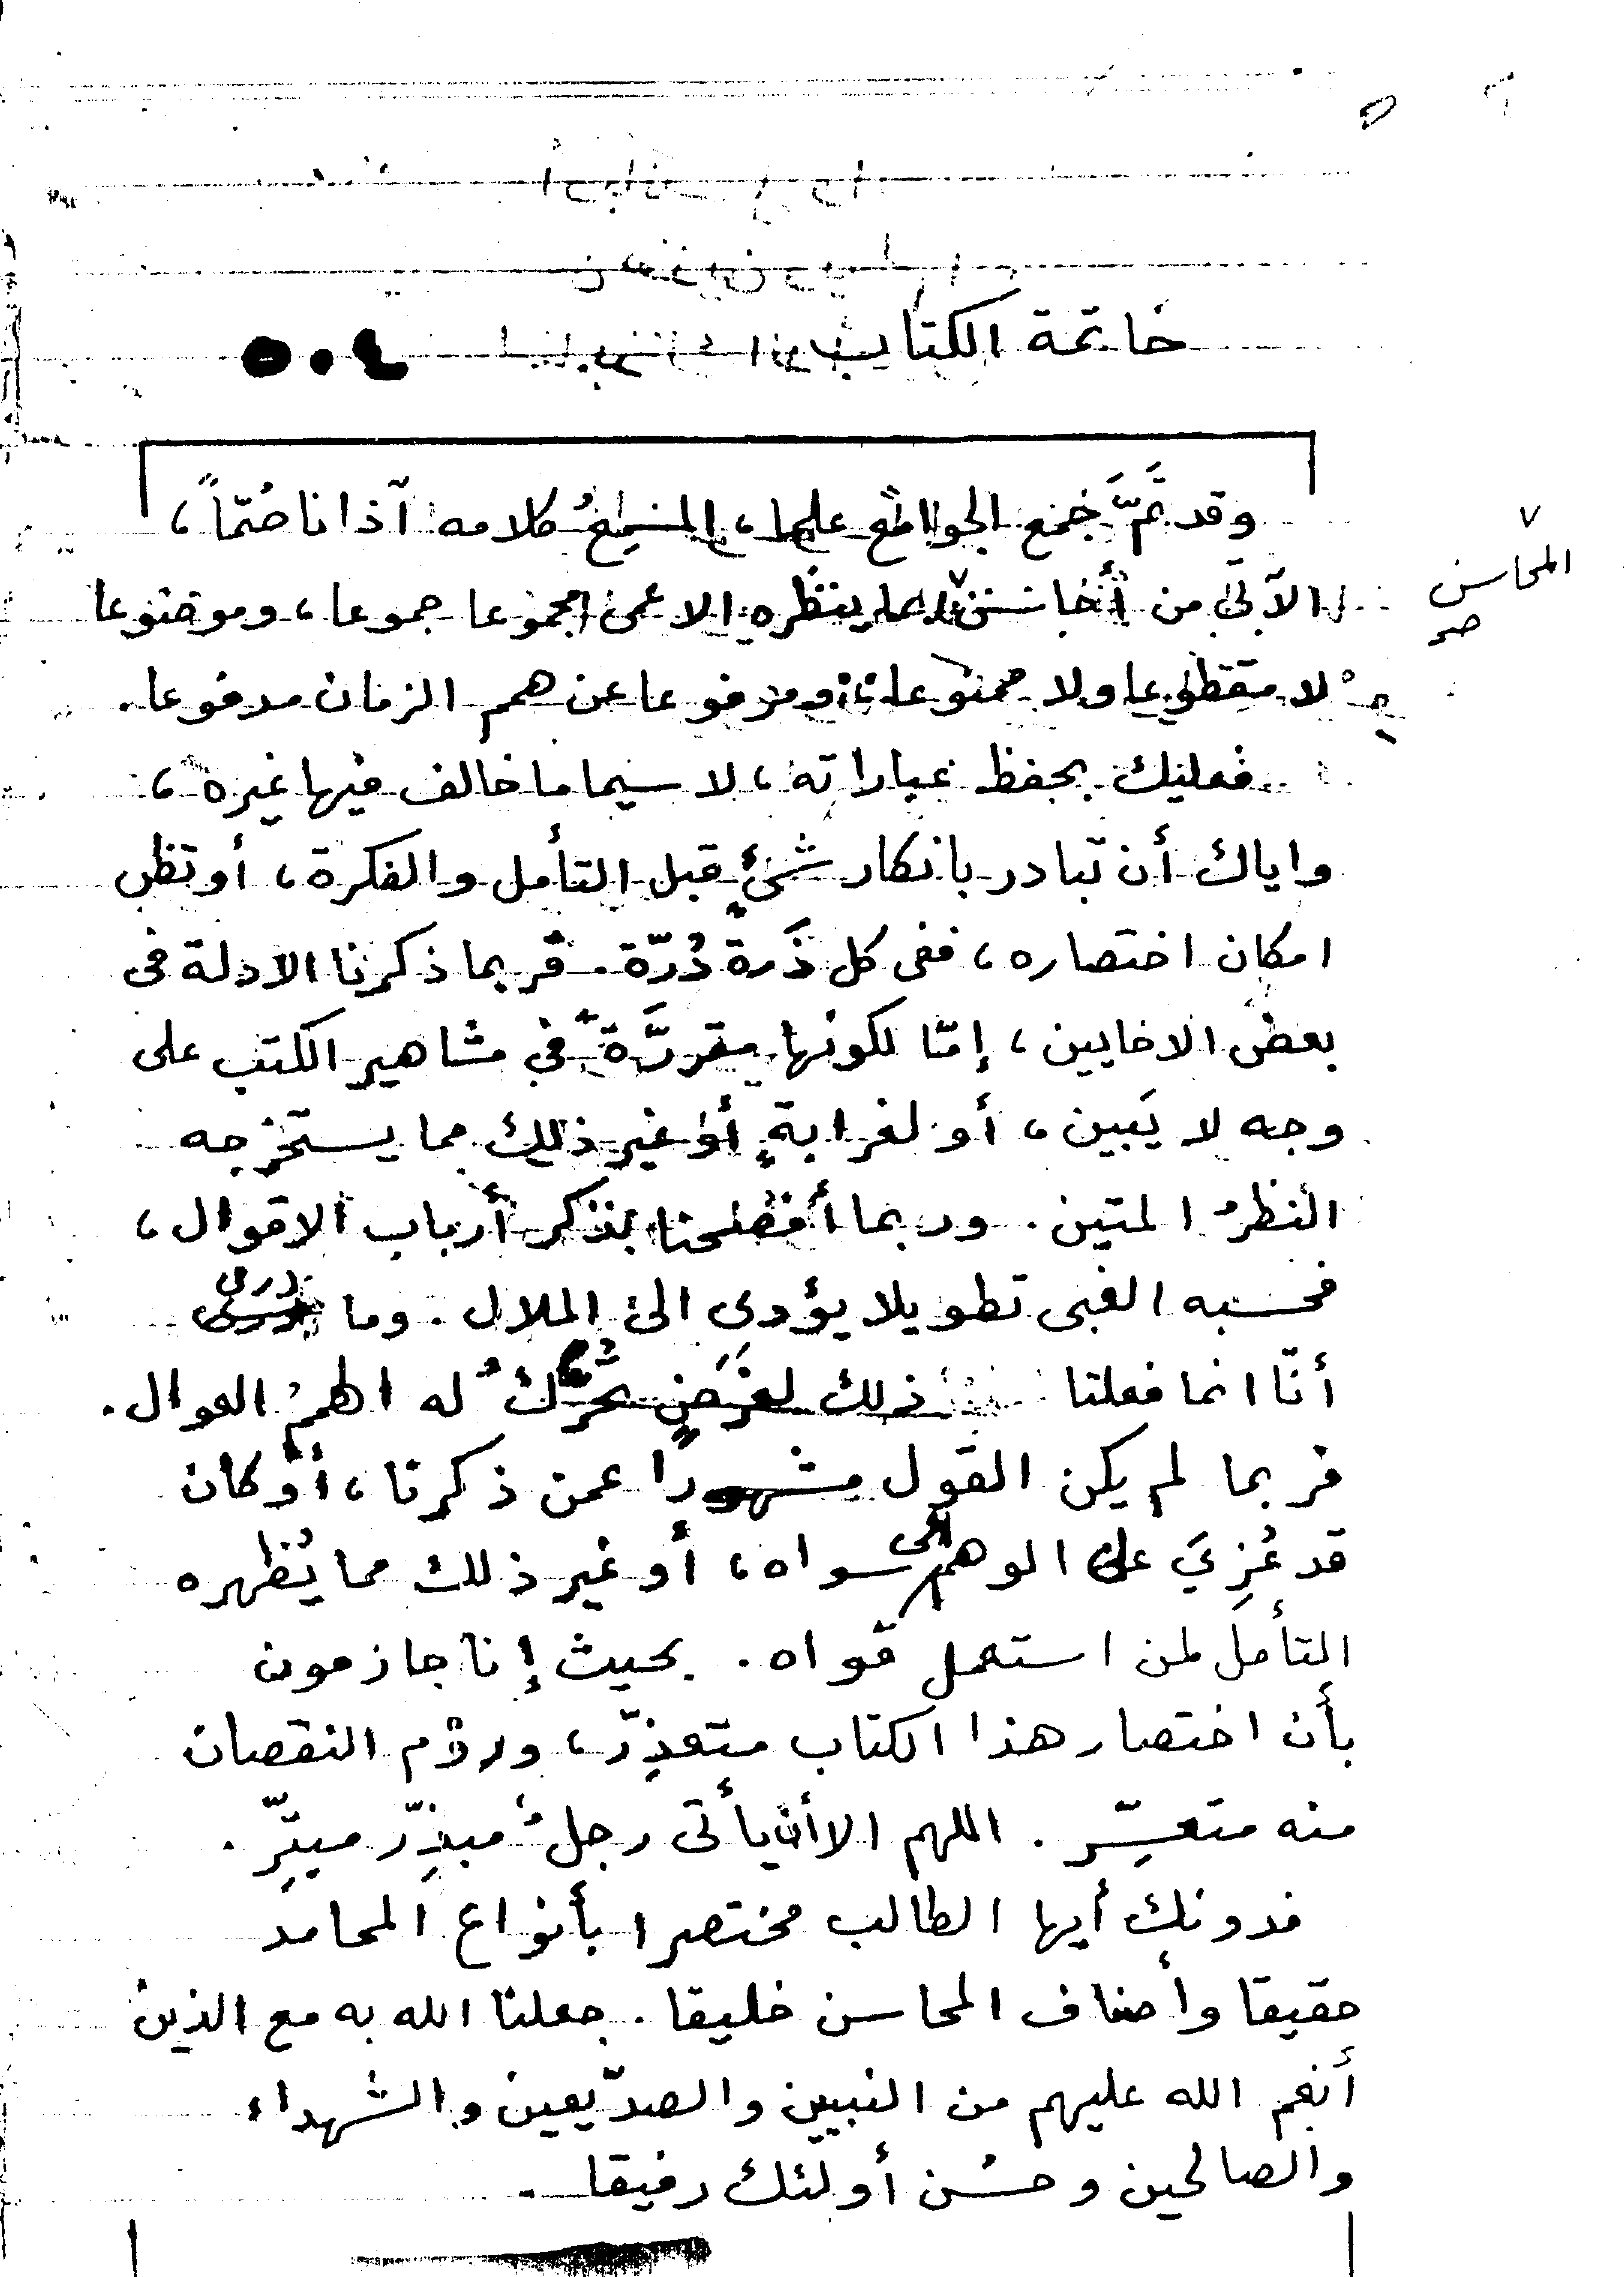 خاتمة الكتاب ٥٠٤
وقد تمَّ جمع الجوامع علما، المسمِعُ كلامه آذانا صُمّاً،
الآتي من أحاسن المحاسن بما ينظره الاعمى مجموعا جموعا، وموضوعا
لا مقطوعا ولا ممنوعا، ومرفوعا عن همم الزمان مدفوعا.
فعليك بحفظ عباراته، لا سيما ما خالف فيها غيره،
واياك أن تبادر بانكار شئٍ قبل التأمل والفكرة، أو تظن
امكان اختصاره، ففى كل ذَرة دُرّة. فربما ذكرنا الادلة فى
بعض الاحايين، إمّا لكونها مقررَّةً في مشاهير الكتب على
وجه لا يَبين، أو لغرابةٍ أو غير ذلك مما يستخرجه
النظرُ المتين. وربما أفصحنا بذكر أرباب الاقوال،
فحسبه الغبى تطويلا يؤدى الى الملال. وما درى
أنّا انما فعلنا ذلك لغَرَضٍ تُحرَّكُ له الهمم العوال.
فربما لم يكن القول مشهورا عمن ذكرنا، أو كان
قد عُزِيَ على الوهم الى سواه، أو غير ذلك مما يُظهره
التأمل لمن استعمل قواه. بحيث إنا جازمون
بأن اختصار هذا الكتاب متعذِرّ، ورَوْم النقصان
منه متعسِّر. اللهم الا أن يأتى رجلُ مبذِرّ مبتِّر.
فدونك أيها الطالب مختصرا بأنواع المحامد
حقيقا وأصناف المحاسن خليقا. جعلنا الله به مع الذين
أنعم الله عليهم من النبيين والصدّيقين والشهداء
والصالحين وحسُن أولئك رفيقا.